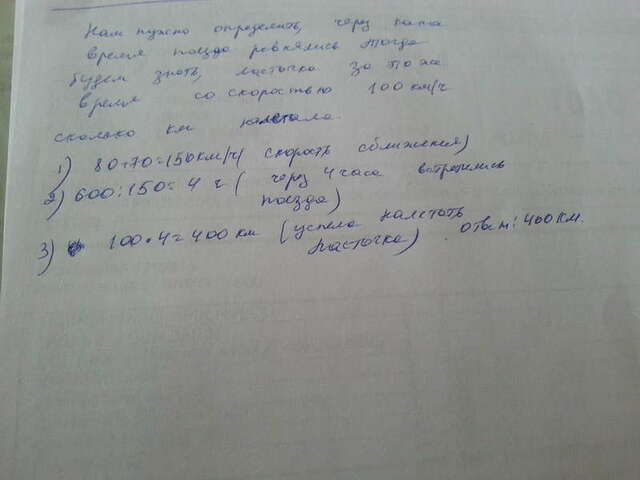 Нам нужно определить, через какое
время поезда ровнялись тогда
будем знать, ласточка за то же
время со скоростью 100 км/ч
сколько км налетала.
1) 80+70=150км/ч( скорость сближения)
2) 600:150=4 ч ( через 4 часа встретились
поезда)
3) 100•4=400 км (успела налетать
ласточка) ответ: 400 км.